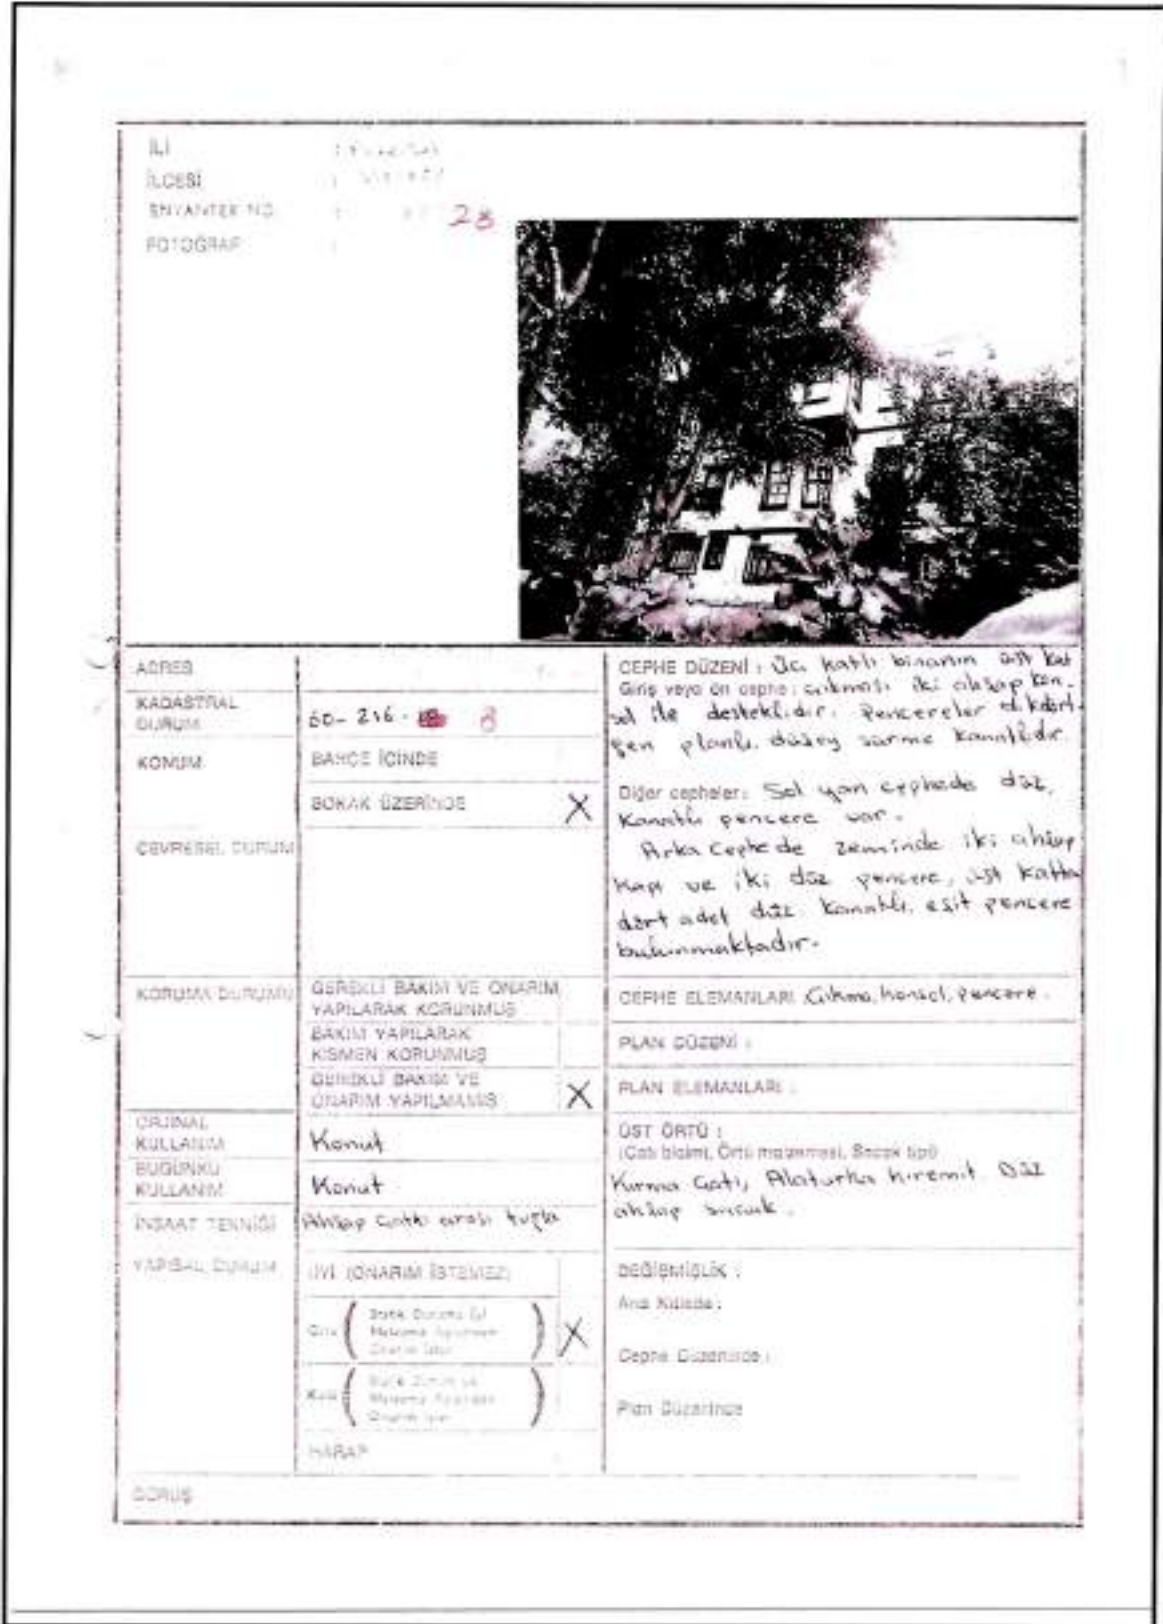 İLİ
İLÇESİ
ENVANTER NO. 28
FOTOĞRAF
ADRES
KADASTRAL
DURUM
60-216- 8
KONUM
BAHÇE İÇİNDE
SOKAK ÜZERİNDE X
ÇEVRESEL DURUM
KORUMA DURUMU
GEREKLİ BAKIM VE ONARIM
YAPILARAK KORUNMUŞ
BAKIM YAPILARAK
KISMEN KORUNMUŞ
GEREKLİ BAKIM VE
ONARIM YAPILMAMIŞ X
ORJİNAL
KULLANIM
Konut
BUGÜNKÜ
KULLANIM
Konut
İNŞAAT TEKNİĞİ
Ahşap çatkı arası tuğla
YAPISAL DURUM
İYİ (ONARIM İSTEMEZ)
Orta ( Statik Durumu İyi
Malzeme Açısından
Onarım İster ) X
Kötü (
Malzeme Açısından
Onarım İster )
HARAP
GÖRÜŞ
CEPHE DÜZENİ : Üç katlı binanın üst kat
Giriş veya ön cephe : çıkması iki ahşap kon-
sol ile desteklidir. Pencereler dikdört-
gen planlı, düşey sürme kanatlıdır.
Diğer cepheler : Sol yan cephede düz,
kanatlı pencere var.
Arka cephede zeminde iki ahşap
kapı ve iki düz pencere, üst katta
dört adet düz kanatlı, eşit pencere
bulunmaktadır.
CEPHE ELEMANLARI : Çıkma, konsol, pencere.
PLAN DÜZENİ :
PLAN ELEMANLARI :
ÜST ÖRTÜ :
(Çatı biçimi, Örtü malzemesi, Saçak tipi)
Kırma çatı, Alaturka kiremit. Düz
ahşap saçak.
DEĞİŞMİŞLİK :
Ana Kitlede :
Cephe Düzeninde :
Plan Düzeninde